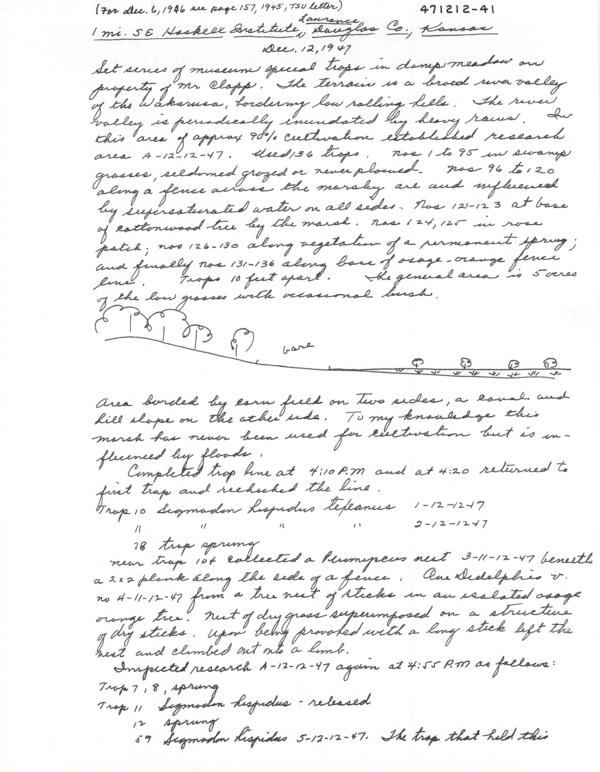 (For Dec. 6, 1946 see page 157, 1945, TSU letter) 471212-41
Lawrence
1 mi. SE Haskell Institute, Douglas Co., Kansas
Dec. 12, 1947
Set series of museum special traps in damp meadow on
property of Mr Clapp. The terrain is a broad river valley
of the Wakarusa, bordering low rolling hills. The river
valley is periodically inundated by heavy rains. In
this area of approx 90% cultivation established research
area A-12-12-47. Used 136 traps. nos 1 to 95 in swamp
grasses, seldomed grazed or never plowed. Nos 96 to 120
along a fence across the marshy are and influenced
by supersaturated water on all sides. Nos 121-123 at base
of cottonwood tree by the marsh. nos 124, 125 in rose
patch; nos 126-130 along vegetation of a permanent spring;
and finally nos 131-136 along base of osage-orange fence
line. Traps 10 feet apart. The general area is 5 acres
of the low grasses with occasional bush.
bare
Area borded by corn field on two sides, a canal and
hill slope on the other side. To my knowledge this
marsh has never been used for cultivation but is in-
fluenced by floods.
Completed trap line at 4:10 P.M and at 4:20 returned to
first trap and rechecked the line.
Trap 10 Sigmodon hispidus texianus 1-12-12-47
" " " " 2-12-12-47
78 trap sprung
near trap 104 collected a Peromyscus nest 3-11-12-47 beneath
a 2x2 plank along the side of a fence. One Didelphis v.
no 4-11-12-47 from a tree nest of sticks in an isolated osage
orange tree. Nest of dry grass superimposed on a structure
of dry sticks. Upon being provoked with a long stick left the
nest and climbed out onto a limb.
Inspected research A-12-12-47 again at 4:55 P.M as follows:
Trap 7, 8, sprung
Trap 11 Sigmodon hispidus - released
12 sprung
59 Sigmodon hispidus 5-12-12-47. The trap that held this